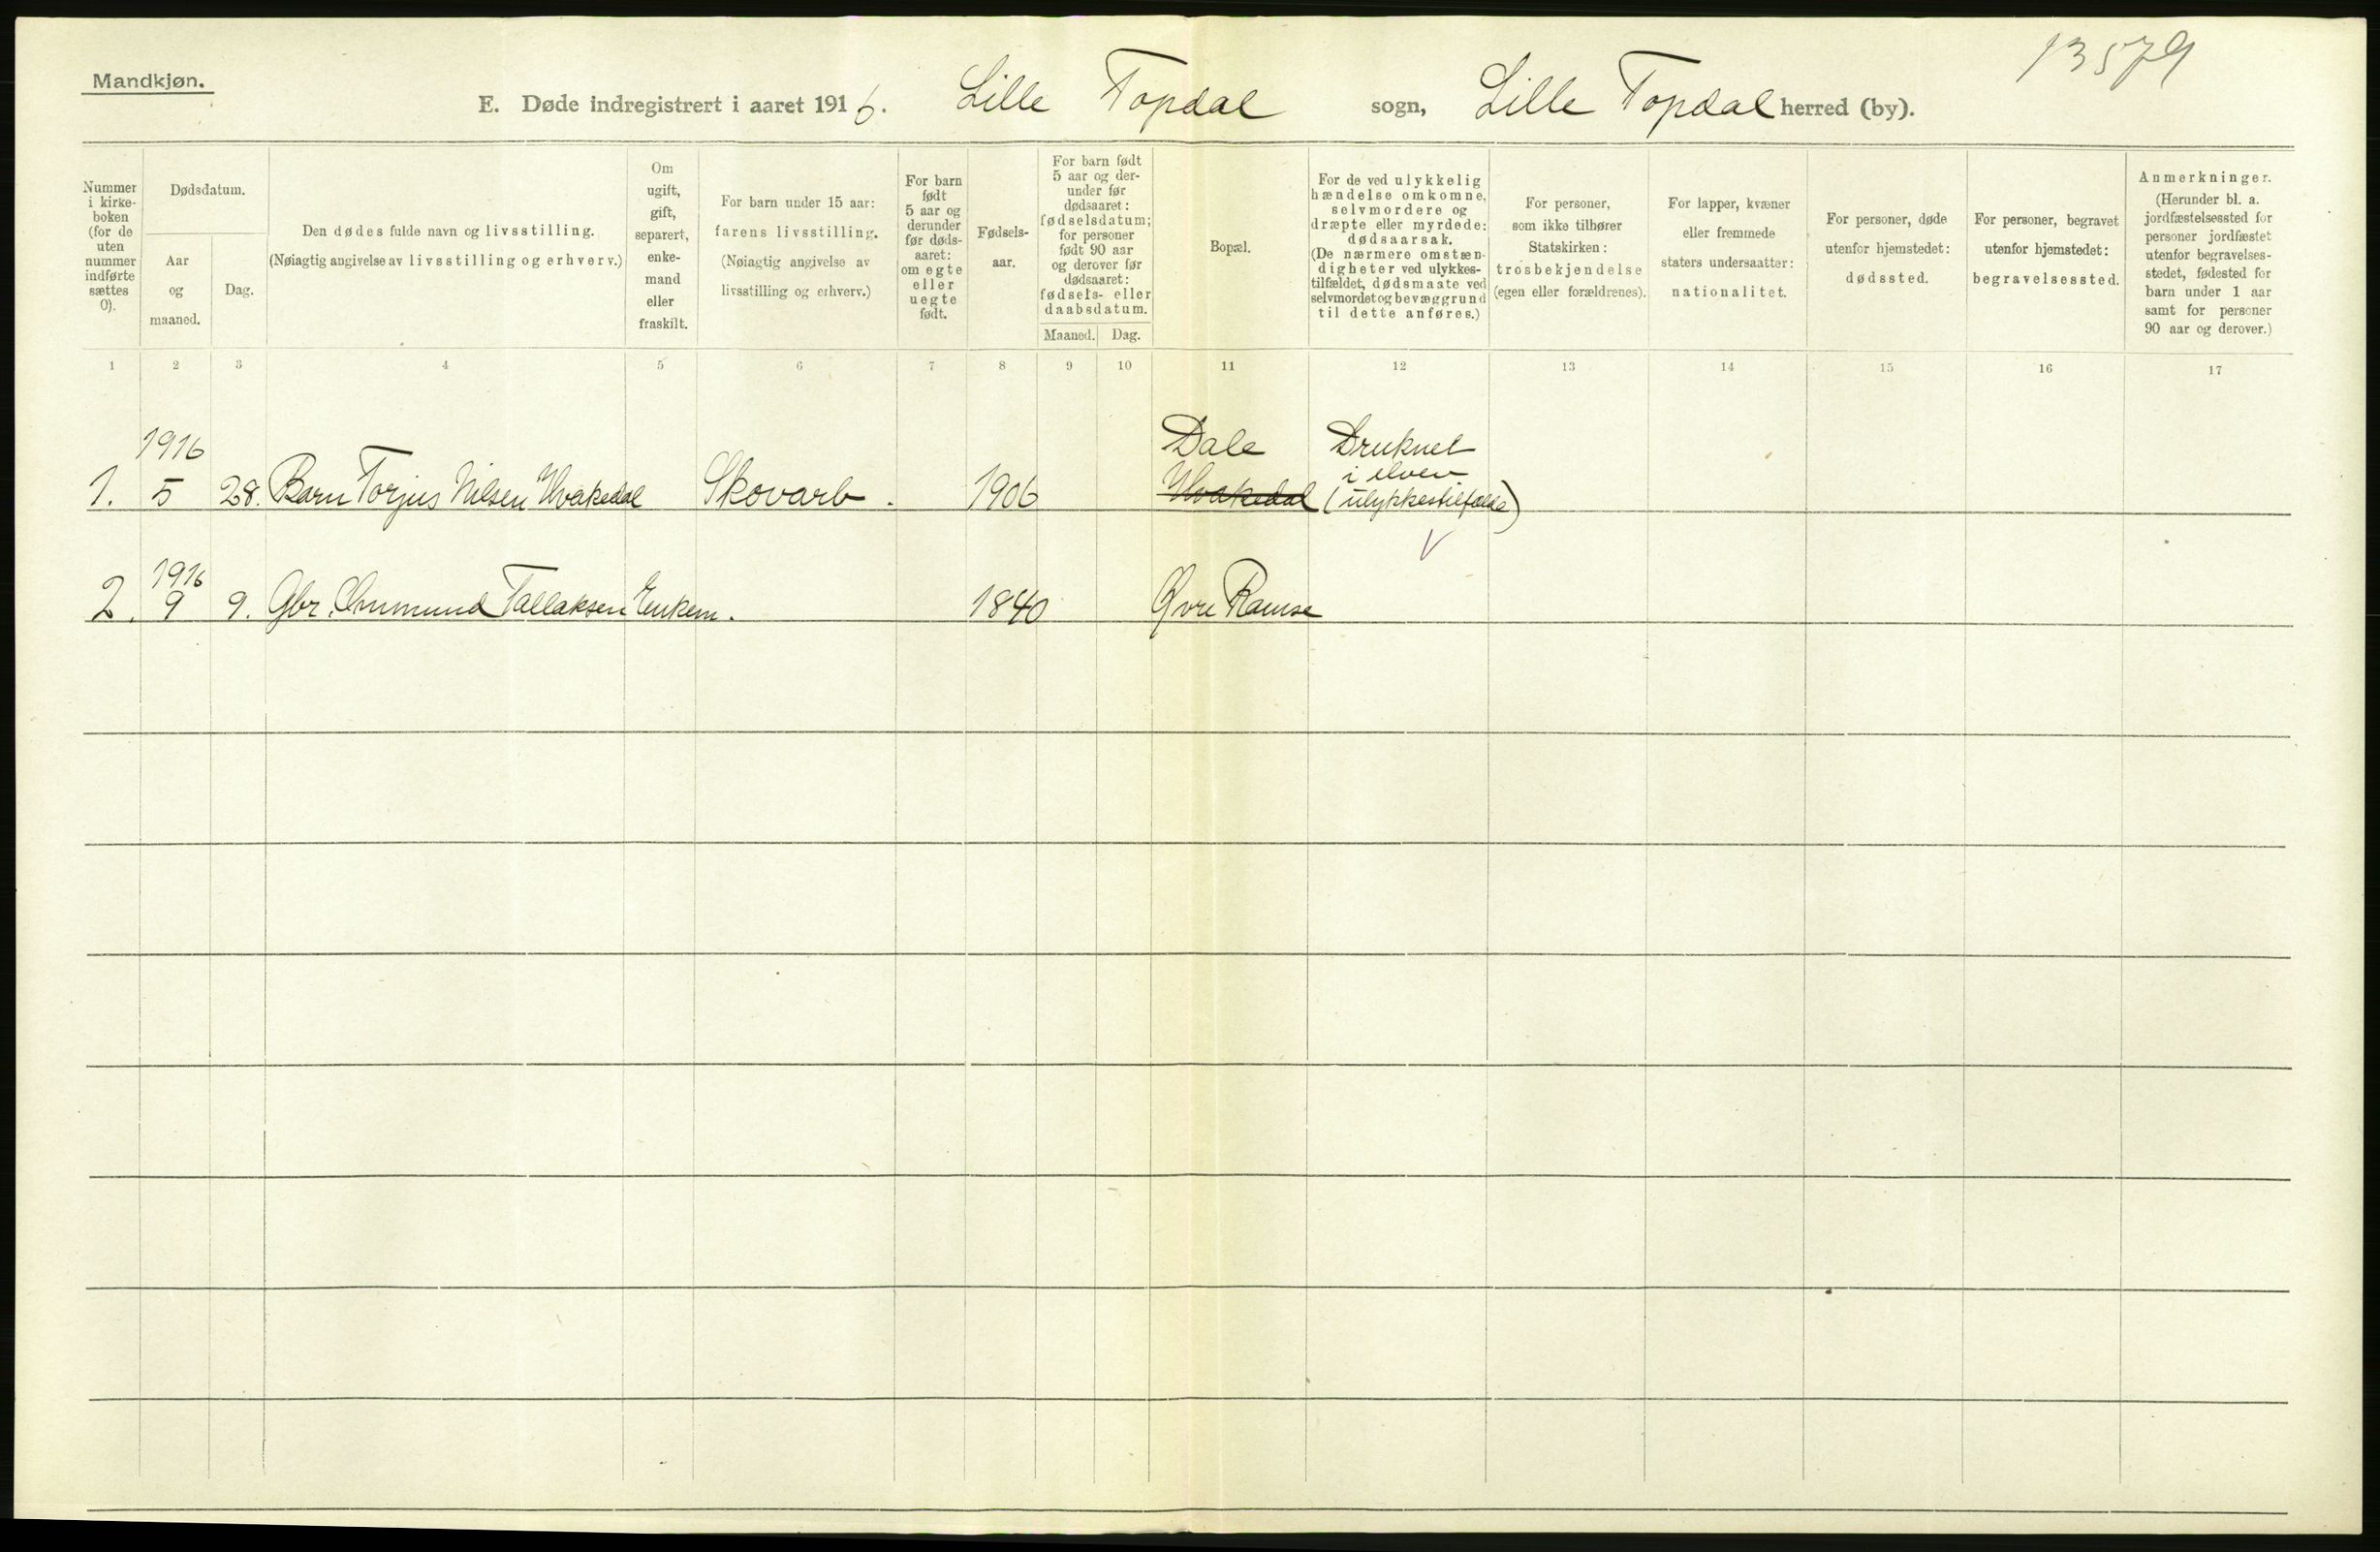 13579
Mandkjøn.
E. Døde indregistrert i aaret 1916. Lille Topdal sogn, Lille Topdal herred (by).
Nummer
i kirke-
boken
(for de
uten
nummer
indførte
sættes
0).
Dødsdatum.
Aar
og
maaned.
Dag.
Den dødes fulde navn og livsstilling.
(Nøiagtig angivelse av livsstilling og erhverv.)
Om
ugift,
gift,
separert,
enke-
mand
eller
fraskilt.
For barn under 15 aar:
farens livsstilling.
(Nøiagtig angivelse av
livsstilling og erhverv.)
For barn
født
5 aar og
derunder
før døds-
aaret:
om egte
eller
uegte
født.
Fødsels-
aar.
For barn født
5 aar og der-
under før
dødsaaret:
fødselsdatum;
for personer
født 90 aar
og derover før
dødsaaret:
fødsels- eller
daabsdatum.
Maaned. Dag.
Bopæl.
For de ved ulykkelig
hændelse omkomne,
selvmordere og
dræpte eller myrdede:
dødsaarsak.
(De nærmere omstæn-
digheter ved ulykkes-
tilfældet, dødsmaate ved
selvmordet og bevæggrund
til dette anføres.)
For personer,
som ikke tilhører
Statskirken:
trosbekjendelse
(egen eller forældrenes).
For lapper, kvæner
eller fremmede
staters undersaatter:
nationalitet.
For personer, døde
utenfor hjemstedet:
dødssted.
For personer, begravet
utenfor hjemstedet:
begravelsessted.
Anmerkninger.
(Herunder bl. a.
jordfæstelsessted for
personer jordfæstet
utenfor begravelses-
stedet, fødested for
barn under 1 aar
samt for personer
90 aar og derover.)
1 2 3 4 5 6 7 8 9 10 11 12 13 14 15 16 17
1916 Dale Druknet
i elven
1. 5 28. Barn Torjus Nilsen Hvakedal Skovarb. 1906 Hvakedal (ulykkestilfælde)
1916
2. 9 9. Gbr. Ommund Tallaksen Enkem. 1840 Øvre Ramse